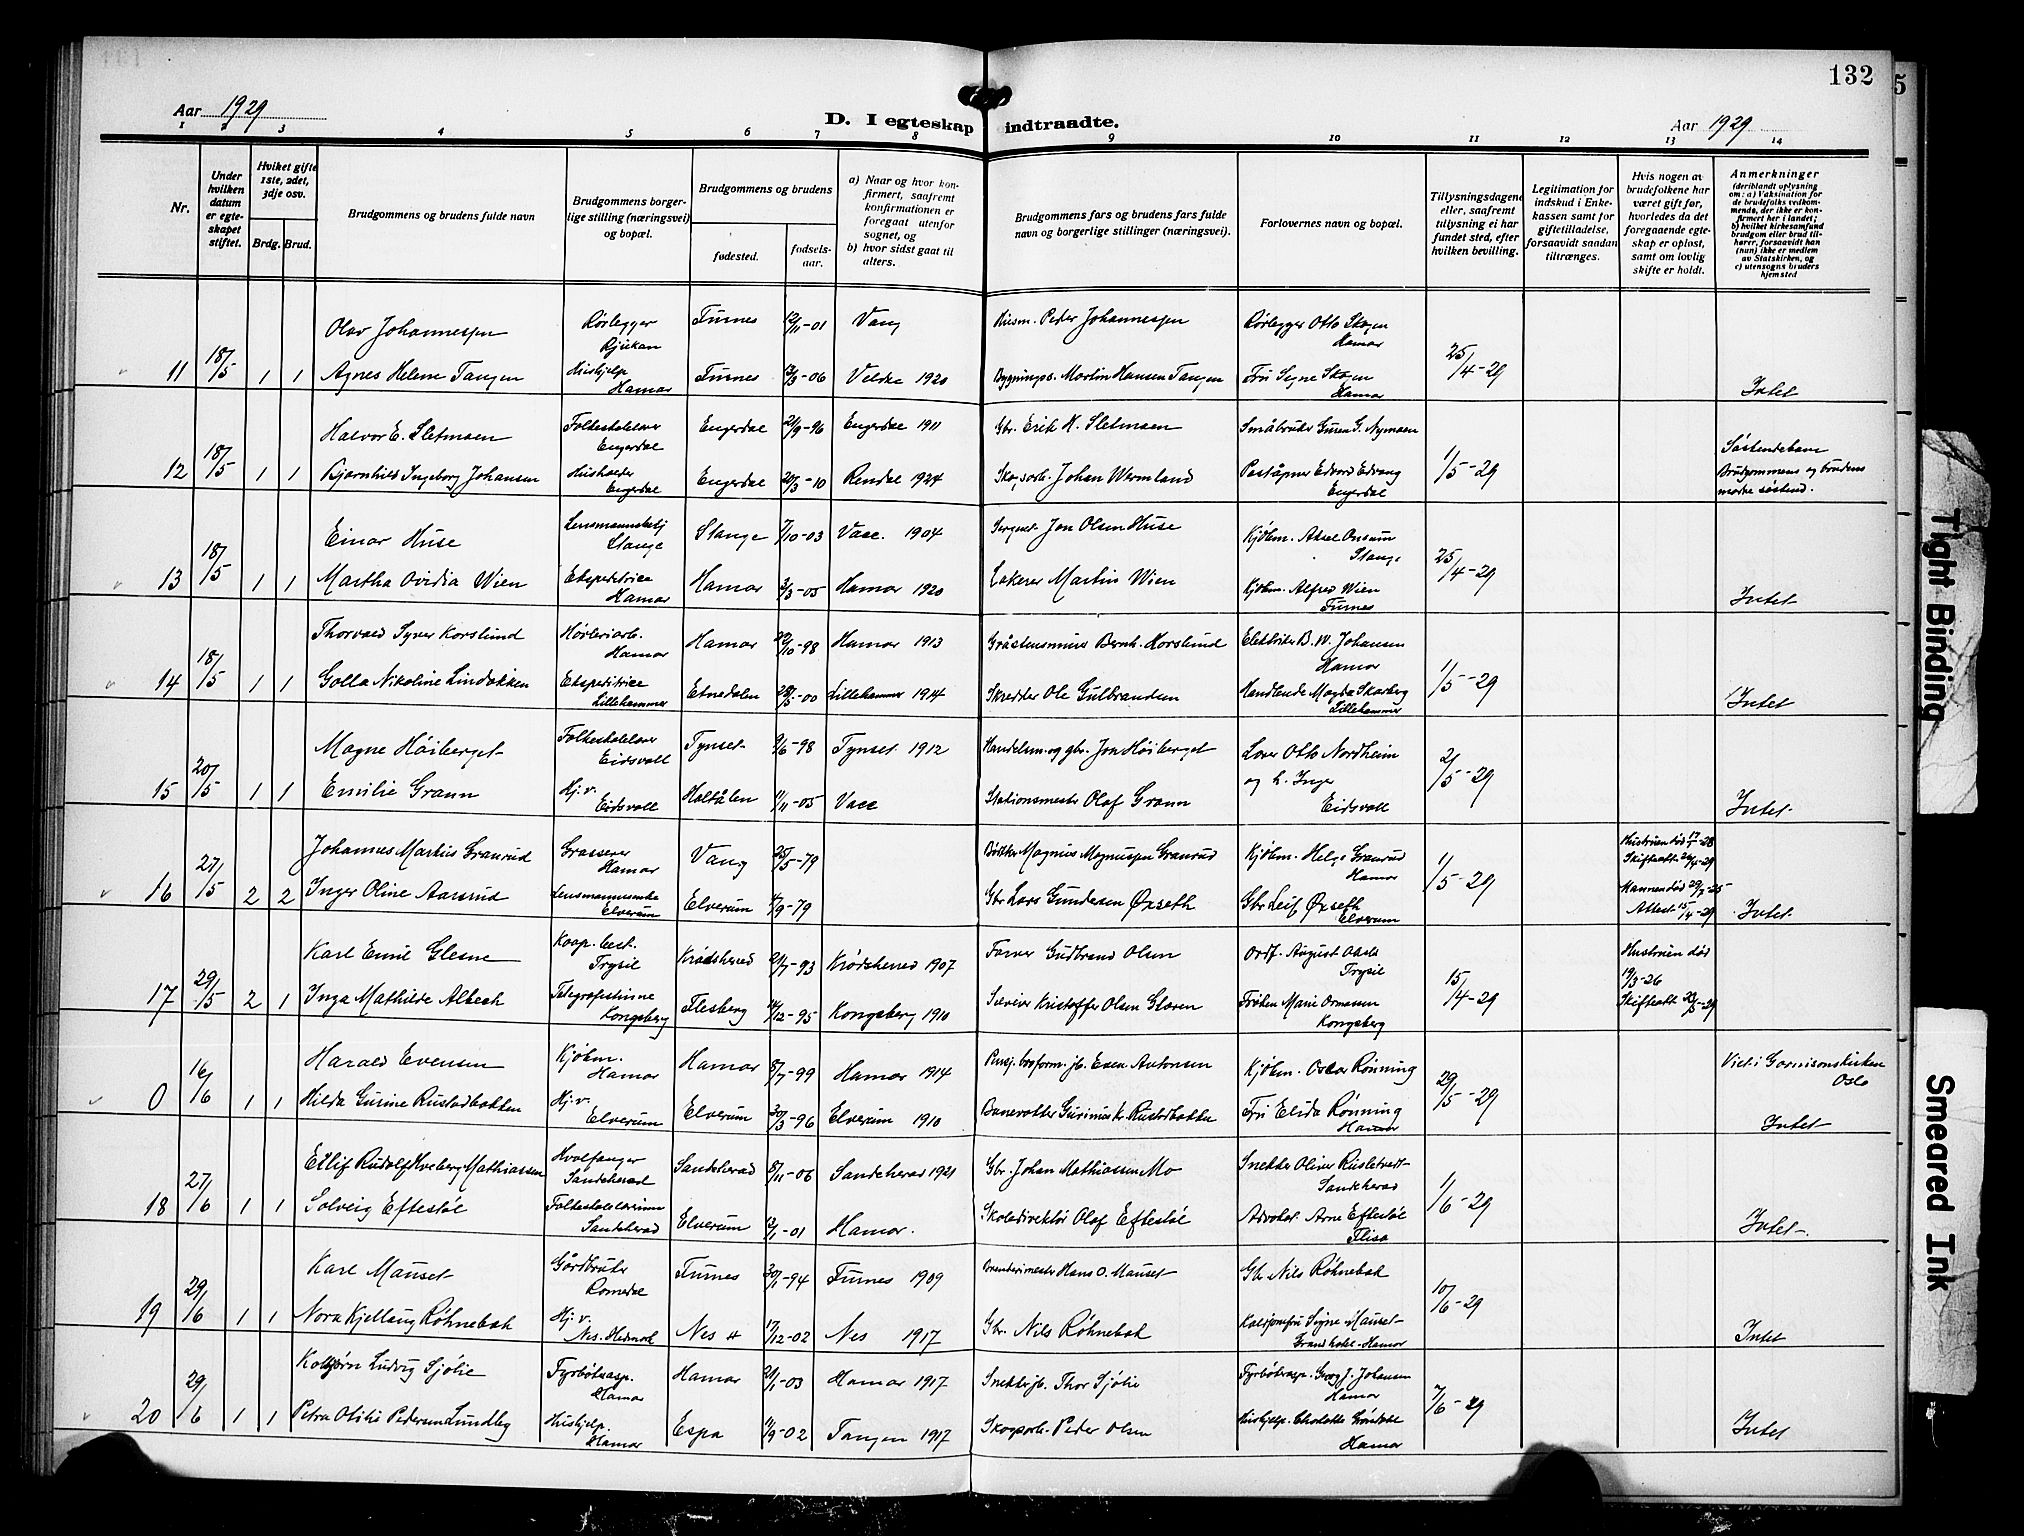 132
Aar 1929
D. I egteskap indtraadte.
Aar 1929
1 2 3 4 5 6 7 8 9 10 11 12 13 14
Nr.
Under hvilken datum er egteskapet stiftet.
Hviket gifte 1ste, 2det, 3dje osv.
Brdg. Brud.
Brudgommens og brudens fulde navn
Brudgommens borgerlige stilling (næringsvei) og bopæl.
Brudgommens og brudens
fødested.
fødselsaar.
a) Naar og hvor konfirmert, saafremt konfirmationen er foregaat utenfor sognet, og
b) hvor sidst gaat til alters.
Brudgommens fars og brudens fars fulde navn og borgerlige stillinger (næringsvei).
Forlovernes navn og bopæl.
Tillysningsdagene eller, saafremt tillysning ei har fundet sted, efter hvilken bevilling.
Legitimation for indskud i Enkekassen samt for giftetilladelse, forsaavidt saadan tiltrænges.
Hvis nogen av brudefolkene har været gift før, hvorledes da det foregaaende egteskap er opløst, samt om lovlig skifte er holdt.
Anmerkninger
(deriblandt oplysning om: a) Vaksination for de brudefolks vedkommende, der ikke er konfirmert her i landet; b) hvilket kirkesamfund brudgom eller brud tilhører, forsaavidt han (hun) ikke er medlem av Statskirken, og c) utensogns bruders hjemsted
Olav Johannessen Rørlegger Rjukan Furnes 12/11-01 Vang Husm. Peder Johannessen Rørlegger Otto Skogen Hamar
11 18/5 1 1 Agnes Helene Tangen Hushjelp Hamar Furnes 2/3-06 Veldre 1920 Bygningss. Martin Hansen Tangen Fru Signe Skogen Hamar 25/4-29 Intet
Halvor E. Sletmoen Folkeskolelærer Engerdal Engerdal 21/9-96 Engerdal 1911 Gbr. Erik H. Sletmoen Småbruker Guren G. Nymoen
12 18/5 1 1 Bjørnhild Ingeborg Johansen Husholder Engerdal Engerdal 20/3-10 Rendal 1924 Skogsarb. Johan Wermland Poståpner Edvard Edvang Engerdal 1/5-29 Søskendebarn Brudgommens og brudens mødre søskend.
Einar Huse Lensmannsbetj Stange Stange 7/10-03 Vall. 1904 Sergeant Jon Olsen Huse Kjøbm. Aksel Onsum Stange
13 18/5 1 1 Martha Ovidia Wien Ekspeditrice Hamar Hamar 3/3-05 Hamar 1920 Lakerer Martin Wien Kjøbm. Alfred Wien Furnes 25/4-29 Intet
Thorvald Syver Korslund Høvleriarb. Hamar Hamar 22/10-98 Hamar 1913 Gråstensmurer Bernh. Korslund Elektriker B. W. Johansen Hamar
14 18/5 1 1 Golla Nikoline Lindokken Ekspeditrice Lillehammer Etnedalen 28/5-00 Lillehammer 1914 Skredder Ole Gulbrandsen Handlende Magda Skarberg Lillehammer 1/5-29 Intet
Magne Høiberget Folkeskolelærer Eidsvoll Tynset 9/6-98 Tynset 1912 Handelsm. og gbr. Jon Høiberget Lærer Otto Nordheim
15 20/5 1 1 Emilie Graun Hj. v. Eidsvoll Holtålen 11/11-05 Vall Stationsmester Olaf Graun og h. Inger Eidsvoll 2/5-29 Intet
Johannes Markus Granrud Grosserer Hamar Vang 25/5-79 Bøkker Magnus Magnussen Granrud Kjøbm. Helge Granrud Hamar Hustruen død 17/1-28 Skifteatt 26/4-29
16 27/5 2 2 Inger Oline Aarsrud Lensmannsenke Elverum Elverum 4/9-79 Gbr. Lars Gundersen Øxseth Gbr Leif Øxseth Elverum 1/5-29 Mannen død 29/7-25 Attest 15/4-29 Intet
Karl Emil Glesne Koop. best. Trysil Krødsherad 21/7-93 Krødsherad 1907 Farver Gudbrand Olsen Ordf. August Trysil Hustruen død
17 29/5 2 1 Inga Mathilde Albech Telegrafistinne Kongsberg Flesberg 14/12-95 Kongsberg 1910 Kristoffer Olsen Frøken Marie Ormasen Kongsberg 15/4-29 19/3-26 Skifteatt 22/5-29
Harald Evensen Kjøbm. Hamar Hamar 8/7-99 Hamar 1914 Pensj. broform. jb. Even Antonsen Kjøbm. Oskar Rønning Viet i Garnisonskirken Oslo
0 16/6 1 1 Hilda Gurine Rustadbakken Hj. v. Elverum Elverum 30/3-96 Elverum 1910 Banevokter Gurinus Kr. Rustadbakken Fru Elida Rønning Hamar 29/5-29 Intet
Eilif Rudolf Hveberg Mathiassen Hvalfanger Sandeherad Sandeherad 8/11-06 Sandeherad 1921 Gbr. Johan Mathiassen Mo Snekker Oliver Sandeherad
18 27/6 1 1 Solveig Eftestøl Folkeskolelærerinne Sandeherad Elverum 2/1-01 Hamar. Skoledirektør Olaf Eftestøl Advokat Arne Eftestøl Flisa 1/6-29 Intet.
Karl Mauset Gårdbruker Romedal Furnes 30/1-94 Furnes 1909 Brenderimester Hans O. Mauset Gbr Nils Røhnebak
19 29/6 1 1 Nora Kjellaug Røhnebak Hj. v. Nes. Hedmark Nes H 17/12-02 Nes 1917 Gbr. Nils Røhnebak Signe Mauset Grand hotel Hamar 10/6-29 Intet
Kolbjørn Ludvig Sjølie Fyrbøterasp. Hamar Hamar 21/1-03 Hamar 1917 Snekker jb. Thor Sjølie Fyrbøterasp. Georg J. Johansen Hamar
20 29/6 1 1 Petra Otilie Pedersen Lundby Hushjelp. Hamar Espa 11/9-02 Tangen 1917 Skogsarb. Peder Olsen Hushjelp. Charlotte Grøndal Hamar 7/6-29 Intet
Tight Binding
Smeared Ink